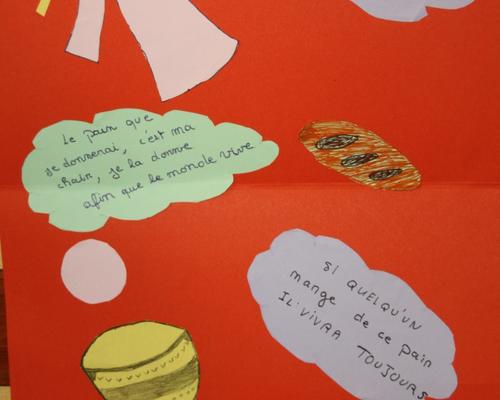 Le pain que
je donnerai, c'est ma
chair, je la donne
afin que le monde vive
SI QUELQU'UN
mange de ce pain
IL VIVRA TOUJOURS